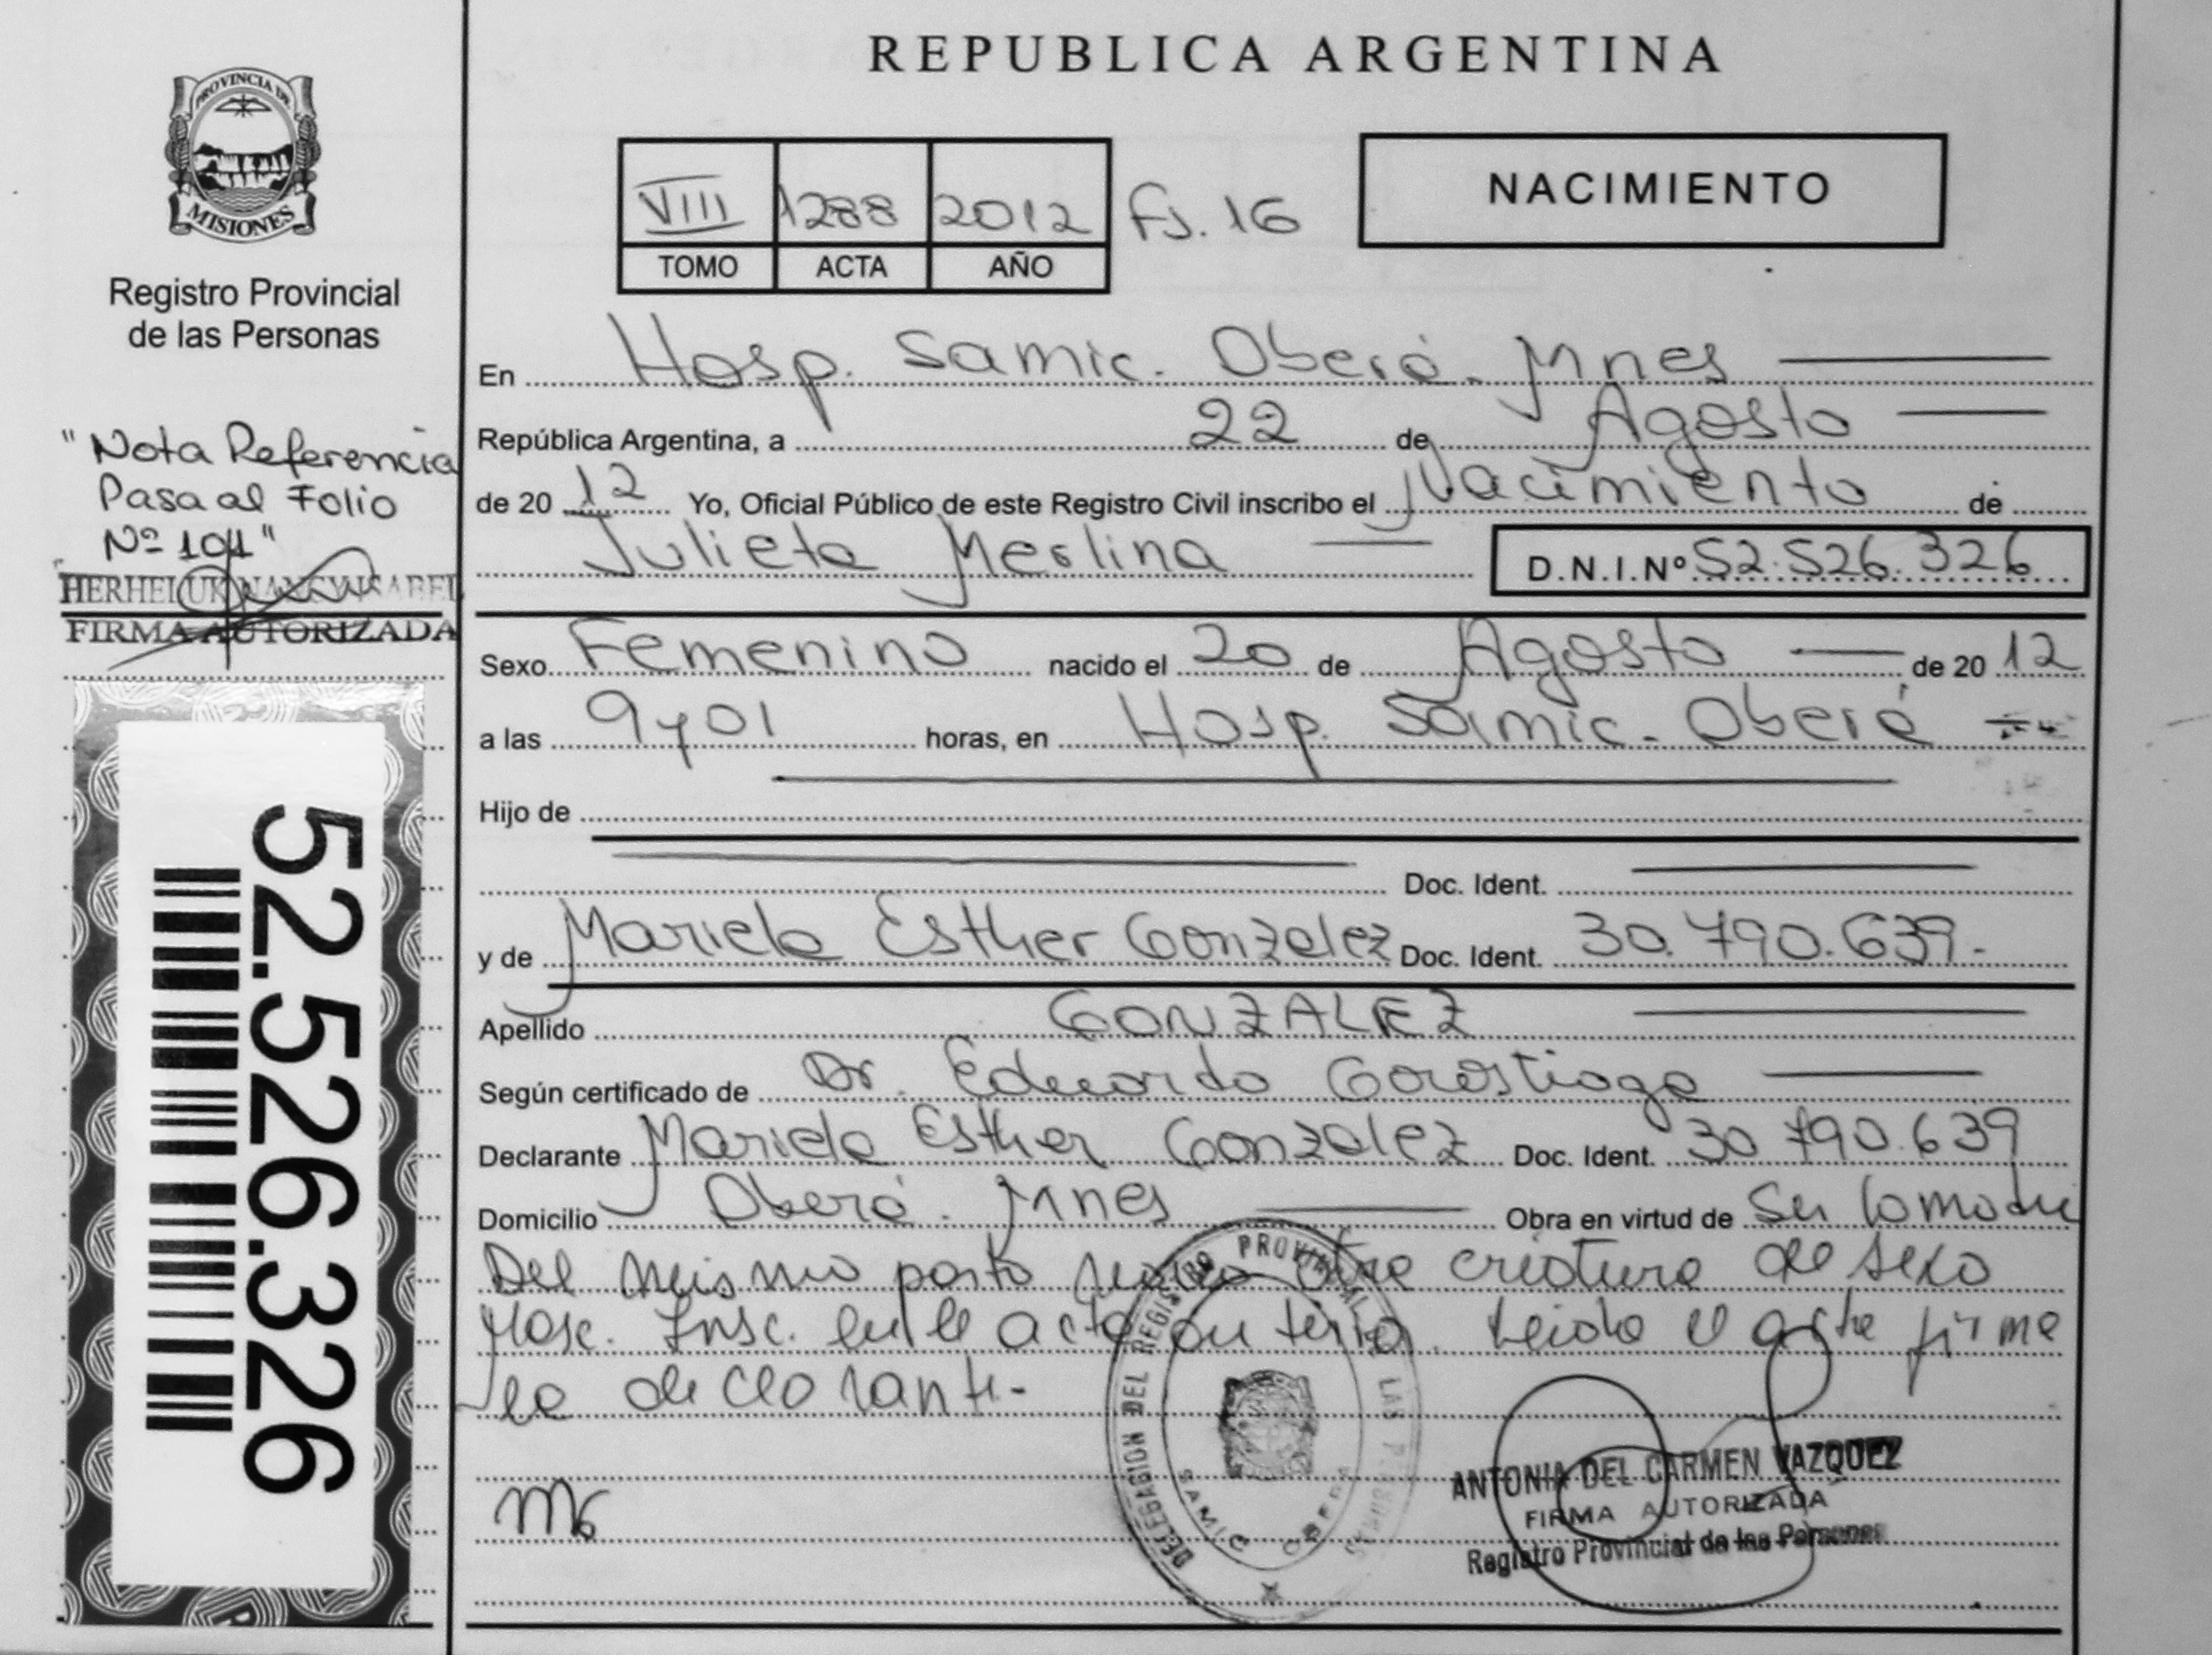 REPUBLICA ARGENTINA
PROVINCIA DE
MISIONES
Registro Provincial
de las Personas
VIII 1288 2012 Fs. 16
TOMO ACTA AÑO
NACIMIENTO
En Hosp. Samic. Oberá. Mnes
República Argentina, a 22 de Agosto
de 20 12 Yo, Oficial Público de este Registro Civil inscribo el Nacimiento de
Julieta Merlina D.N.I.Nº 52.526.326
"Nota Referencia
Pasa al Folio
Nº 101"
HERHELUK NANCY ISABEL
FIRMA AUTORIZADA
Sexo Femenino nacido el 20 de Agosto de 20 12
a las 9 y 01 horas, en Hosp. Samic. Oberá
Hijo de
Doc. Ident.
y de Mariela Esther Gonzalez Doc. Ident. 30.790.639.
Apellido GONZALEZ
Según certificado de Dr. Eduardo Gorostiaga
Declarante Mariela Esther Gonzalez Doc. Ident. 30 790.639
Domicilio Oberá. Mnes Obra en virtud de Ser la madre
Del mismo parto nació otra criatura de sexo
Masc. Insc. en el acta anterior. Leida el acta firma
la declarante.
52.526.326
DELEGACION DEL REGISTRO PROVINCIAL LAS PERSONAS
SAMIC OBERA
ANTONIA DEL CARMEN VAZQUEZ
FIRMA AUTORIZADA
Registro Provincial de las Personas